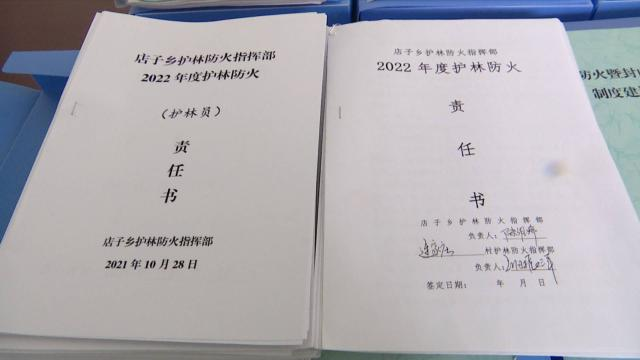 店子乡护林防火指挥部
2022年度护林防火
（护林员）
责
任
书
店子乡护林防火指挥部
2021年10月28日
店子乡护林防火指挥部
2022年度护林防火
责
任
书
店子乡护林防火指挥部
负责人：
村护林防火指挥部
负责人：
签定日期： 年 月 日
防火暨封山
制度建